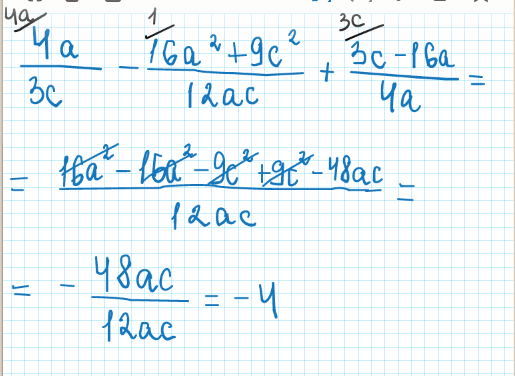 4a 1 3c
4a/3c - 16a²+9c²/12ac + 3c-16a/4a =
= 16a² - 16a² - 9c² + 9c² - 48ac/12ac =
= - 48ac/12ac = -4